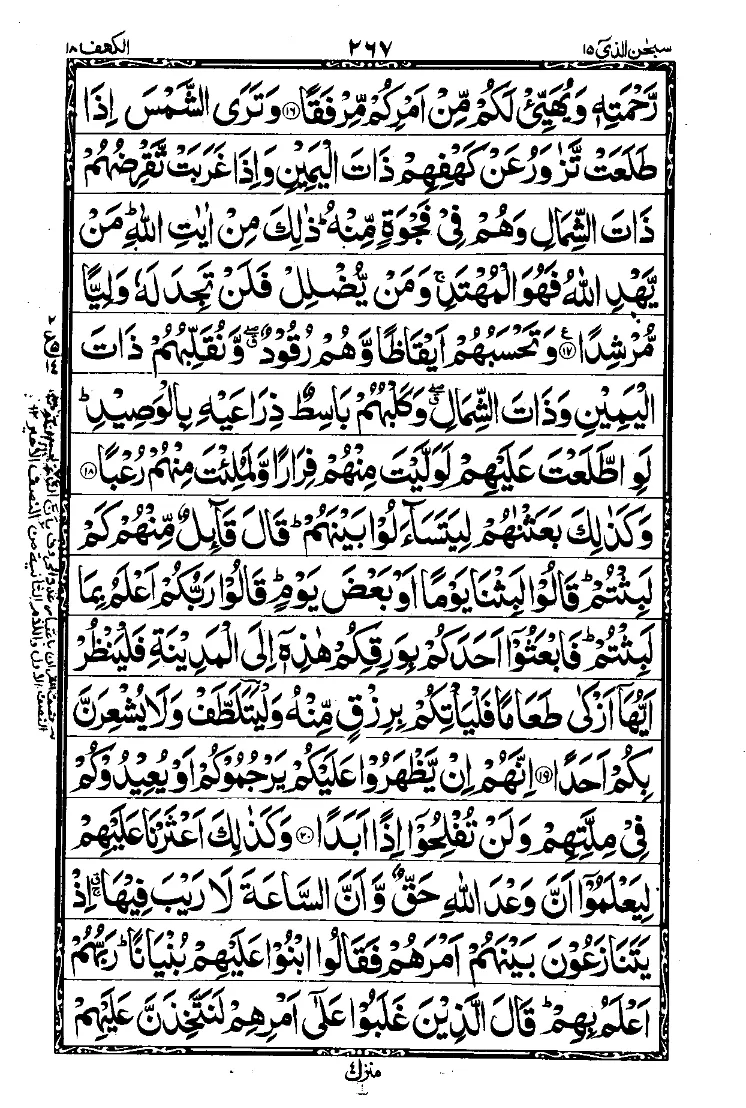 سبحٰن الذیٓ ١٥
٢٦٧
الكهف ١٨
رَّحْمَتِهٖ وَيُهَيِّئْ لَكُمْ مِّنْ اَمْرِكُمْ مِّرْفَقًا ۝١٦ وَتَرَى الشَّمْسَ اِذَا
طَلَعَتْ تَّزٰوَرُ عَنْ كَهْفِهِمْ ذَاتَ الْيَمِيْنِ وَاِذَا غَرَبَتْ تَّقْرِضُهُمْ
ذَاتَ الشِّمَالِ وَهُمْ فِيْ فَجْوَةٍ مِّنْهُ ؕ ذٰلِكَ مِنْ اٰيٰتِ اللّٰهِ ؕ مَنْ
يَّهْدِ اللّٰهُ فَهُوَ الْمُهْتَدِ ۚ وَمَنْ يُّضْلِلْ فَلَنْ تَجِدَ لَهٗ وَلِيًّا
مُّرْشِدًا ۝١٧ ع وَتَحْسَبُهُمْ اَيْقَاظًا وَّهُمْ رُقُوْدٌ ۖق وَّنُقَلِّبُهُمْ ذَاتَ
الْيَمِيْنِ وَذَاتَ الشِّمَالِ ۖق وَكَلْبُهُمْ بَاسِطٌ ذِرَاعَيْهِ بِالْوَصِيْدِ ؕ
لَوِ اطَّلَعْتَ عَلَيْهِمْ لَوَلَّيْتَ مِنْهُمْ فِرَارًا وَّلَمُلِئْتَ مِنْهُمْ رُعْبًا ۝١٨
وَكَذٰلِكَ بَعَثْنٰهُمْ لِيَتَسَآءَلُوْا بَيْنَهُمْ ؕ قَالَ قَآئِلٌ مِّنْهُمْ كَمْ
لَبِثْتُمْ ؕ قَالُوْا لَبِثْنَا يَوْمًا اَوْ بَعْضَ يَوْمٍ ؕ قَالُوْا رَبُّكُمْ اَعْلَمُ بِمَا
لَبِثْتُمْ ؕ فَابْعَثُوْٓا اَحَدَكُمْ بِوَرِقِكُمْ هٰذِهٖٓ اِلَى الْمَدِيْنَةِ فَلْيَنْظُرْ
اَيُّهَآ اَزْكٰى طَعَامًا فَلْيَاْتِكُمْ بِرِزْقٍ مِّنْهُ وَلْيَتَلَطَّفْ وَلَا يُشْعِرَنَّ
بِكُمْ اَحَدًا ۝١٩ اِنَّهُمْ اِنْ يَّظْهَرُوْا عَلَيْكُمْ يَرْجُمُوْكُمْ اَوْ يُعِيْدُوْكُمْ
فِيْ مِلَّتِهِمْ وَلَنْ تُفْلِحُوْٓا اِذًا اَبَدًا ۝٢٠ وَكَذٰلِكَ اَعْثَرْنَا عَلَيْهِمْ
لِيَعْلَمُوْٓا اَنَّ وَعْدَ اللّٰهِ حَقٌّ وَّاَنَّ السَّاعَةَ لَا رَيْبَ فِيْهَا اِذْ
يَتَنَازَعُوْنَ بَيْنَهُمْ اَمْرَهُمْ فَقَالُوا ابْنُوْا عَلَيْهِمْ بُنْيَانًا ؕ رَبُّهُمْ
اَعْلَمُ بِهِمْ ؕ قَالَ الَّذِيْنَ غَلَبُوْا عَلٰٓى اَمْرِهِمْ لَنَتَّخِذَنَّ عَلَيْهِمْ
منزل ٤